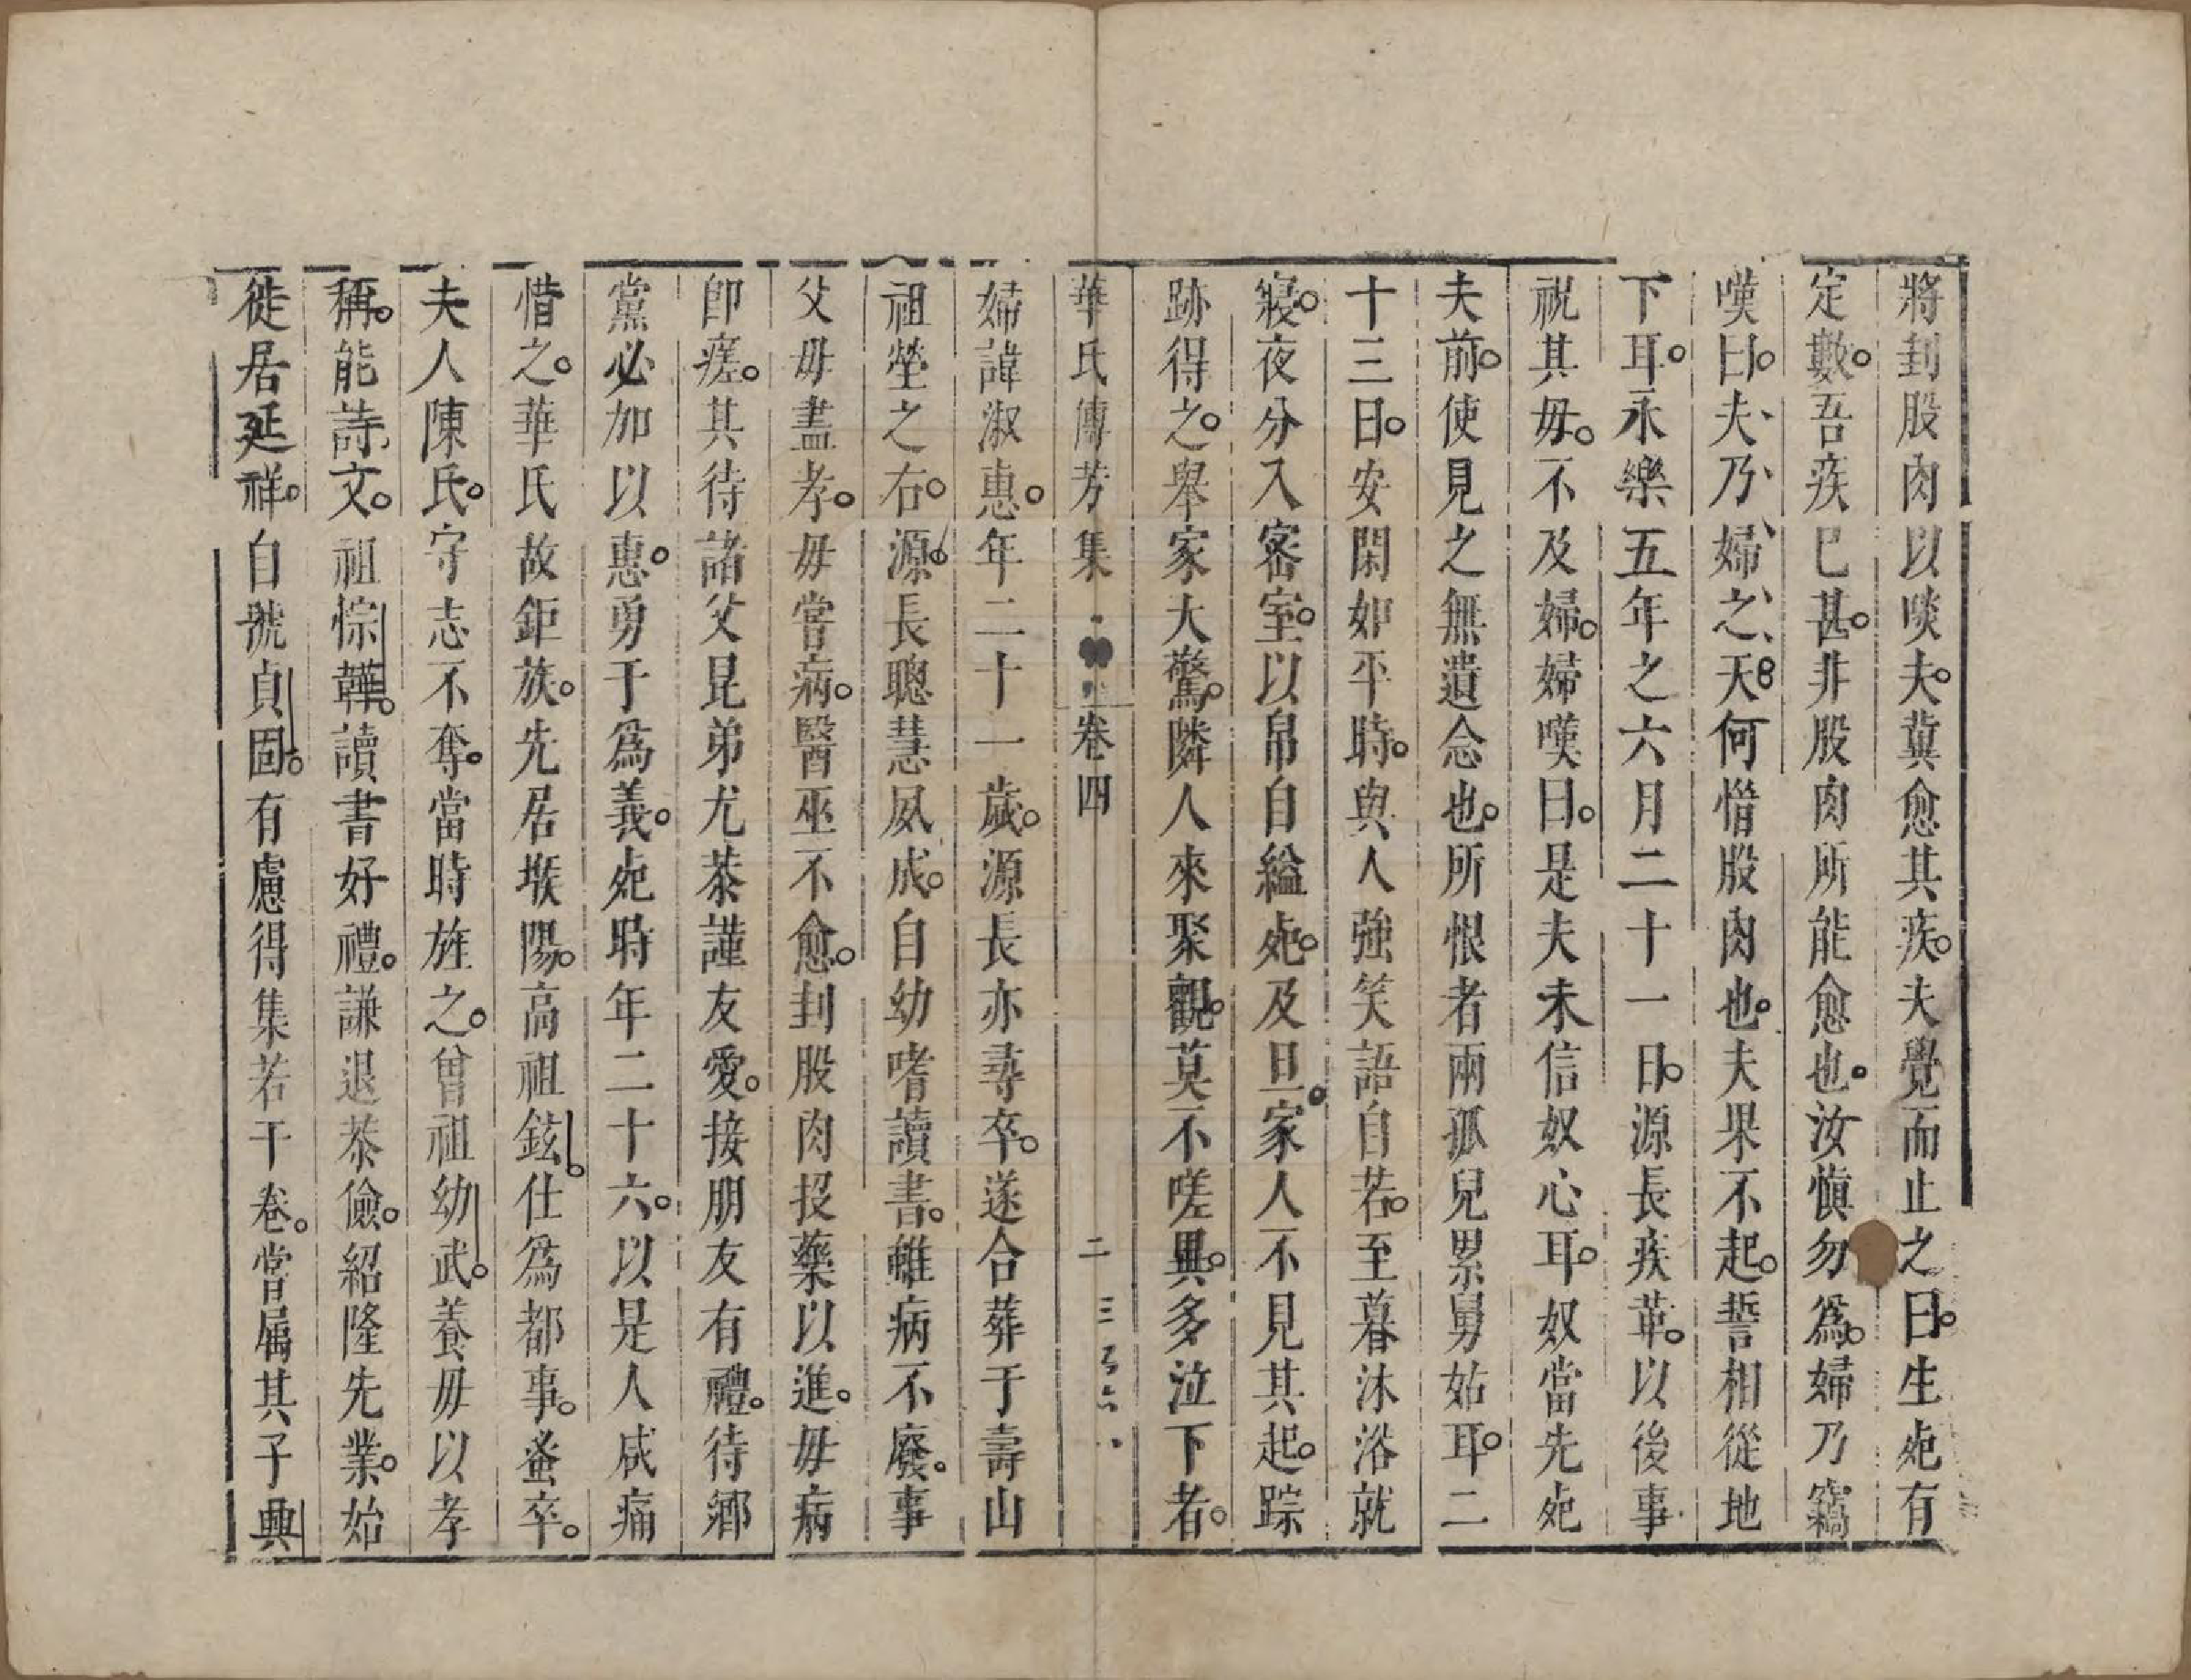 將刲股肉以啖夫。冀愈其疾。夫覺而止之曰。生死有
定數。吾疾已甚。非股肉所能愈也。汝愼勿爲。婦乃竊
嘆曰。夫、乃、婦、之、天。何惜股肉也。夫果不起。誓相從地
下耳。永樂五年之六月二十一日。源長疾革。以後事
祝其母。不及婦。婦嘆曰。是夫未信奴心耳。奴當先死
夫前。使見之無遺念也。所恨者兩孤兒累舅姑耳。二
十三日。安閑如平時。與人強笑語自若。至暮沐浴就
寢。夜分入密室。以帛自縊死。及旦。家人不見其起。踪
跡得之。舉家大驚。隣人來聚觀。莫不嗟異。多泣下者。
華氏傳芳集 卷四 二
婦諱淑惠。年二十一歲。源長亦尋卒。遂合葬于壽山
祖塋之右。源長聰慧夙成。自幼嗜讀書。雖病不廢。事
父母盡孝。母嘗病。醫巫不愈。刲股肉投藥以進。母病
卽瘥。其待諸父昆弟尤恭謹友愛。接朋友有禮。待鄉
黨必加以惠。勇于爲義。死時年二十六。以是人咸痛
惜之。華氏故鉅族。先居堠陽。高祖鉉。仕爲都事。蚤卒。
夫人陳氏。守志不奪。當時旌之。曾祖幼武。養母以孝
稱。能詩文。祖悰韡。讀書好禮。謙退恭儉。紹隆先業。始
徙居延祥。自號貞固。有慮得集若干卷。嘗屬其子興